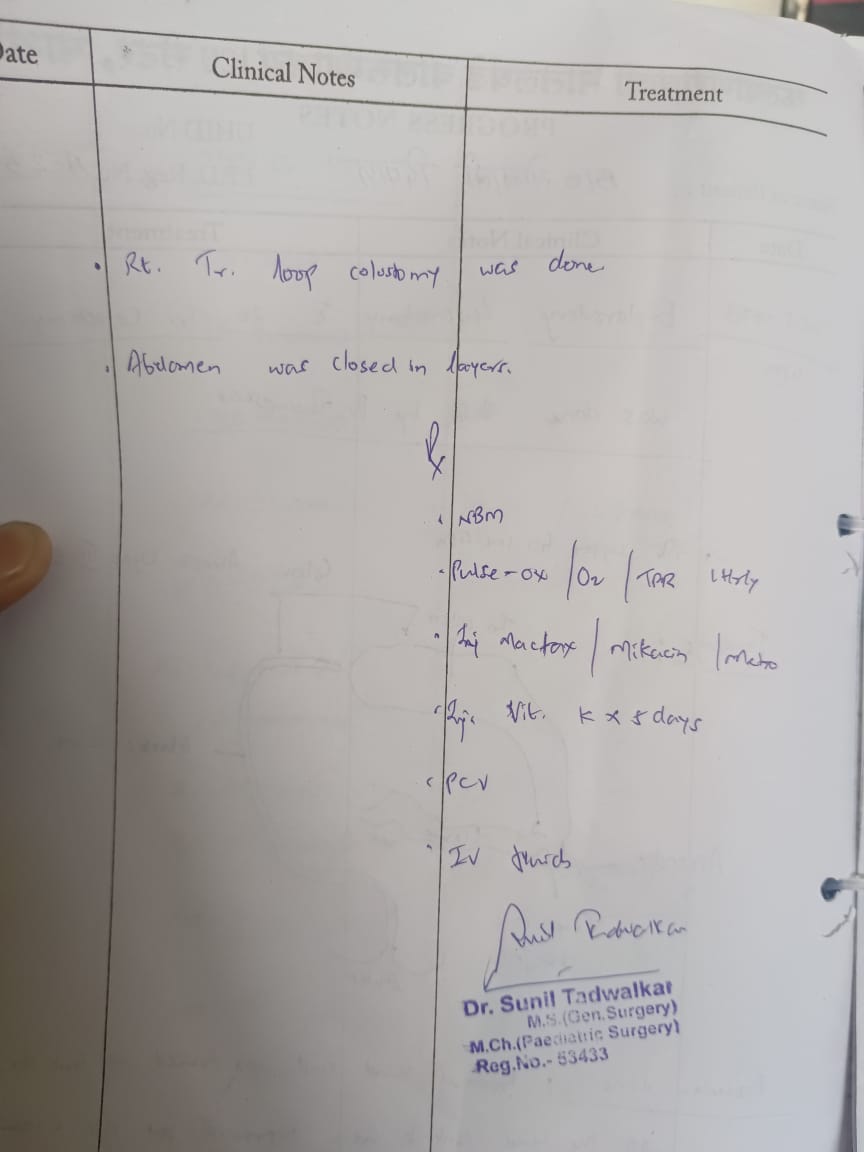 Date Clinical Notes Treatment
• Rt. Tr. loop colostomy was done
• Abdomen was closed in layers.
Rx
• NBM
• Pulse-ox / O2 / TPR 1Hrly
• Inj Mactax / Mikacin / Metro
• Inj. Vit. K x 5 days
• PCV
• IV fluids
Sunil Tadwalkar
Dr. Sunil Tadwalkar
M.S.(Gen.Surgery)
M.Ch.(Paediatric Surgery)
Reg.No.- 53433